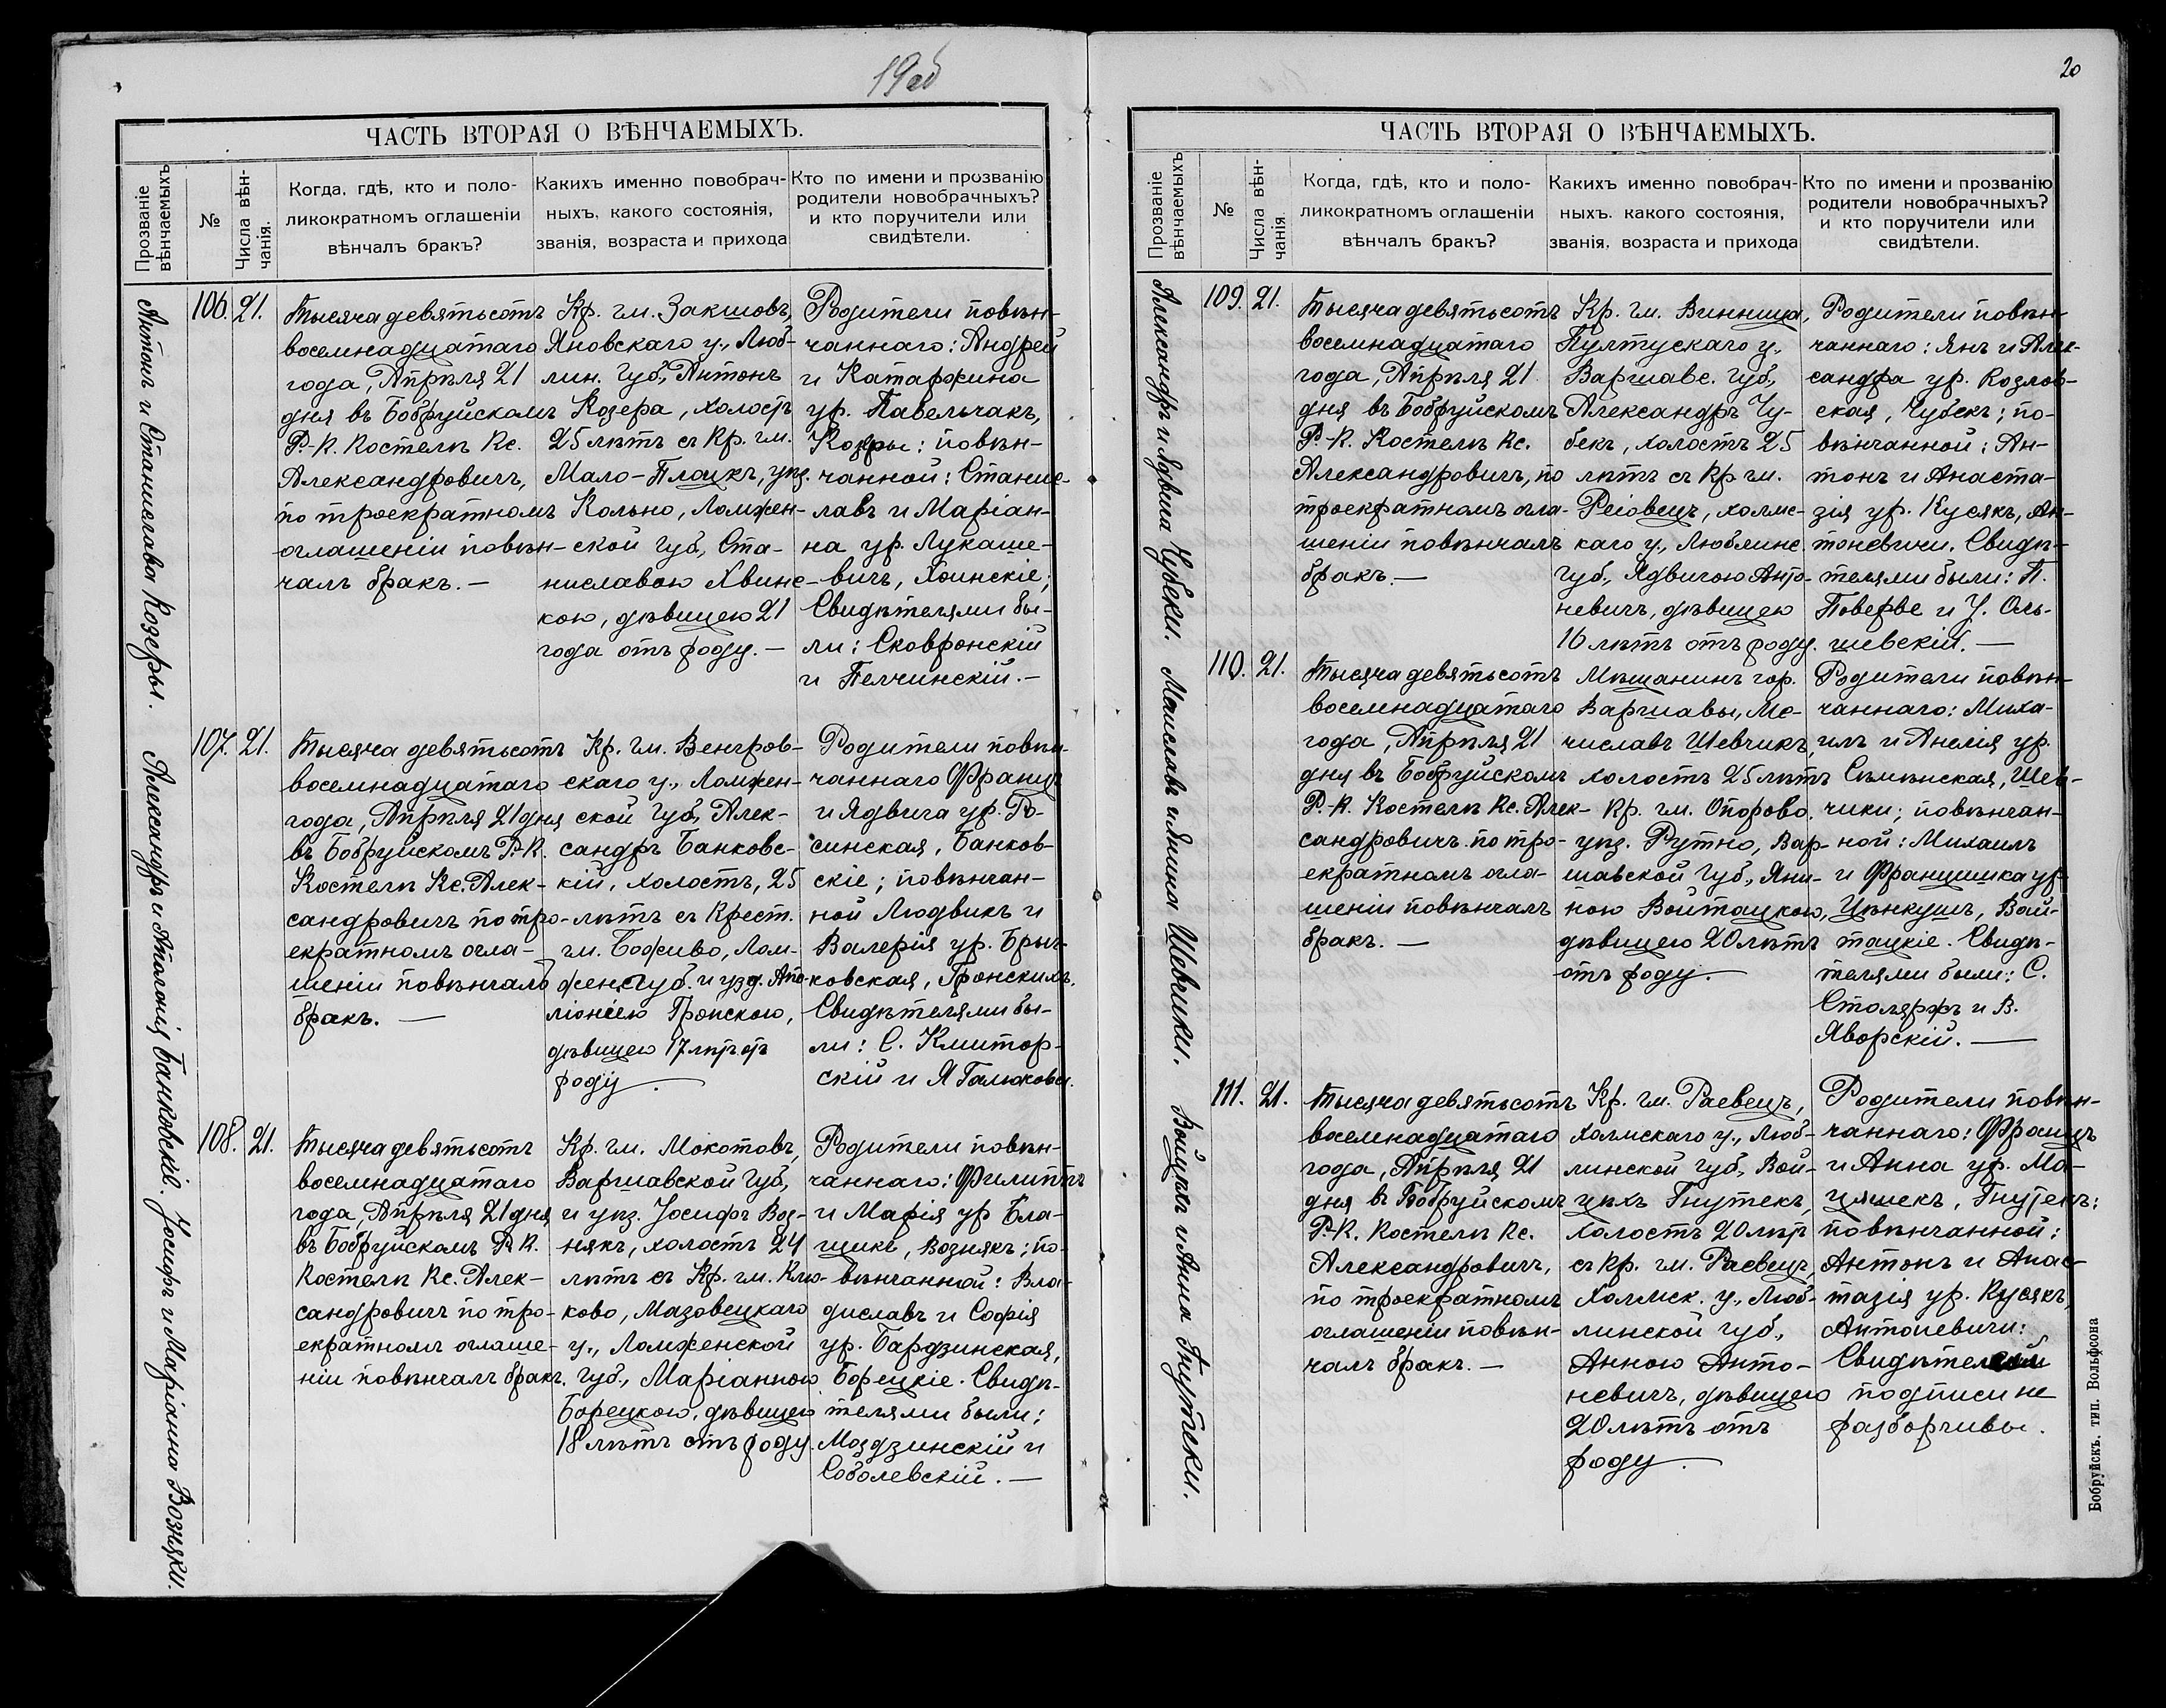 19об
ЧАСТЬ ВТОРАЯ О ВѢНЧАЕМЫХЪ.
Прозваніе вѣнчаемыхъ
№
Числа вѣнчанія.
Когда, гдѣ, кто и поло-
ликократномъ оглашеніи
вѣнчалъ бракъ?
Какихъ именно повобрач-
ныхъ, какого состоянія,
званія, возраста и прихода
Кто по имени и прозванію
родители новобрачныхъ?
и кто поручители или
свидѣтели.
Антонъ и Станислава Козеры.
106. 21.
Тысяча девятьсотъ
восемнадцатаго
года, Апрѣля 21
дня въ Бобруйскомъ
Р.-К. Костелѣ Кс.
Александровичъ,
по троекратномъ
оглашеніи повѣн-
чалъ бракъ. —
Кр. гм. Закшовъ,
Яновскаго у., Люб-
лин. Губ., Антонъ
Козера, холостъ
25 лѣтъ съ Кр. гм.
Мало-Плоцкъ, уѣз.
Кольно, Ломжен-
ской Губ., Ста-
ниславою Хвинс-
кою, дѣвицею 21
года отъ роду. —
Родители повѣн-
чаннаго: Андрей
и Катаржина
ур. Павельчакъ,
Козеры: повѣн-
чанной: Станис-
лавъ и Маріан-
на ур. Лукаше-
вичъ, Хоинскіе;
Свидѣтелями бы-
ли: Сковронскій
и Пелчинскій. —
Александръ и Аполонія Банковскіе.
107. 21.
Тысяча девятьсотъ
восемнадцатаго
года, Апрѣля 21 дня
въ Бобруйскомъ Р.-К.
Костелѣ Кс. Алек-
сандровичъ по тро-
екратномъ огла-
шеніи повѣнчалъ
бракъ. —
Кр. гм. Венгров-
скаго у., Ломжен-
ской Губ., Алек-
сандръ Банковс-
кій, холостъ, 25
лѣтъ съ Крест.
гм. Боживо, Лом-
жен. Губ. и уѣзд. Апо-
лоніею Гронскою,
дѣвицею 17 лѣтъ отъ
роду.
Родители повѣн-
чаннаго Францъ
и Ядвига ур. Ро-
синская, Банков-
скіе; повѣнчан-
ной Людвикъ и
Валерія ур. Брыч-
ковская, Гронскихъ.
Свидѣтелями бы-
ли: С. Клитор-
скій и Я
Іосифъ и Маріанна Возняки.
108. 21.
Тысяча девятьсотъ
восемнадцатаго
года, Апрѣля 21 дня
въ Бобруйскомъ Р.-К.
Костелѣ Кс. Алек-
сандровичъ по тро-
екратномъ оглаше-
ніи повѣнчалъ бракъ.
Кр. гм. Мокотовъ,
Варшавской Губ.,
и уѣз. Іосифъ Воз-
някъ, холостъ 24
лѣтъ съ Кр. гм. Клю-
ково, Мазовецкаго
у., Ломженской
Губ., Маріанною
Борецкою, дѣвицею
18 лѣтъ отъ роду.
Родители повѣн-
чаннаго: Филиппъ
и Марія ур. Бла-
щикъ, Вознякъ; по-
вѣнчанной: Вла-
диславъ и Софія
ур. Бардзинская,
Борецкіе. Свидѣ-
телями были:
Моздзинскій и
Соболевскій. —
20
ЧАСТЬ ВТОРАЯ О ВѢНЧАЕМЫХЪ.
Прозваніе вѣнчаемыхъ
№
Числа вѣнчанія.
Когда, гдѣ, кто и поло-
ликократномъ оглашеніи
вѣнчалъ бракъ?
Какихъ именно повобрач-
ныхъ. какого состоянія,
званія, возраста и прихода
Кто по имени и прозванію
родители новобрачныхъ?
и кто поручители или
свидѣтели.
Александръ и Ядвига Чубеки.
109. 21.
Тысяча девятьсотъ
восемнадцатаго
года, Апрѣля 21
дня въ Бобруйскомъ
Р.-К. Костелѣ Кс.
Александровичъ, по
троекратномъ огла-
шеніи повѣнчалъ
бракъ. —
Кр. гм. Винница,
Пултускаго у.,
Варшавс. Губ.,
Александръ Чу-
бекъ, холостъ 25
лѣтъ съ Кр. гм.
Реіовецъ, холмс-
каго у., Люблинс.
Губ., Ядвигою Анто-
невичъ, дѣвицею
16 лѣтъ отъ роду.
Родители повѣн-
чаннаго: Янъ и Алек-
сандра ур. Козлов-
ская, Чубекъ; по-
вѣнчанной: Ан-
тонъ и Анаста-
зія ур. Кусякъ, Ан-
тоневичи. Свидѣ-
телями были: П.
Поверве и У. Оль-
шевскій. —
Мсиславъ и Янина Шевчики.
110. 21.
Тысяча девятьсотъ
восемнадцатаго
года, Апрѣля 21
дня въ Бобруйскомъ
Р.-К. Костелѣ Кс. Алек-
сандровичъ по тро-
екратномъ огла-
шеніи повѣнчалъ
бракъ. —
Мѣщанинъ гор.
Варшавы, Ме-
числавъ Шевчикъ,
холостъ 25 лѣтъ
Кр. гм. Опорово,
уѣз. Рутно, Вар-
шавской Губ., Яни-
ною Войтацкою,
дѣвицею 20 лѣтъ
отъ роду.
Родители повѣн-
чаннаго: Миха-
илъ и Анелія ур.
Сѣмѣнская, Шев-
чики; повѣнчан-
ной: Михаилъ
и Францишка ур.
Цѣнкушъ, Вой-
тацкіе. Свидѣ-
телями были: С.
Столяржъ и В.
Яворскій. —
Войцѣхъ и Анна Гнутеки.
111. 21.
Тысяча девятьсотъ
восемнадцатаго
года, Апрѣля 21
дня въ Бобруйскомъ
Р.-К. Костелѣ Кс.
Александровичъ,
по троекратномъ
оглашеніи повѣн-
чалъ бракъ. —
Кр. гм. Раевецъ,
Холмскаго у., Люб-
линской Губ., Вой-
цѣхъ Гнутекъ,
холостъ 20 лѣтъ
съ Кр. гм. Раевецъ,
Холмск. у., Люб-
линской Губ.,
Анною Анто-
невичъ, дѣвицею
20 лѣтъ отъ
роду.
Родители повѣн-
чаннаго: Францъ
и Анна ур. Ма-
цяшекъ, Гнутекъ:
повѣнчанной:
Антонъ и Анас-
тазія ур. Кусякъ,
Антоневичи:
Свидѣтелей
подписи не
разборчивы.
Бобруйскъ. тип. Вольфсона